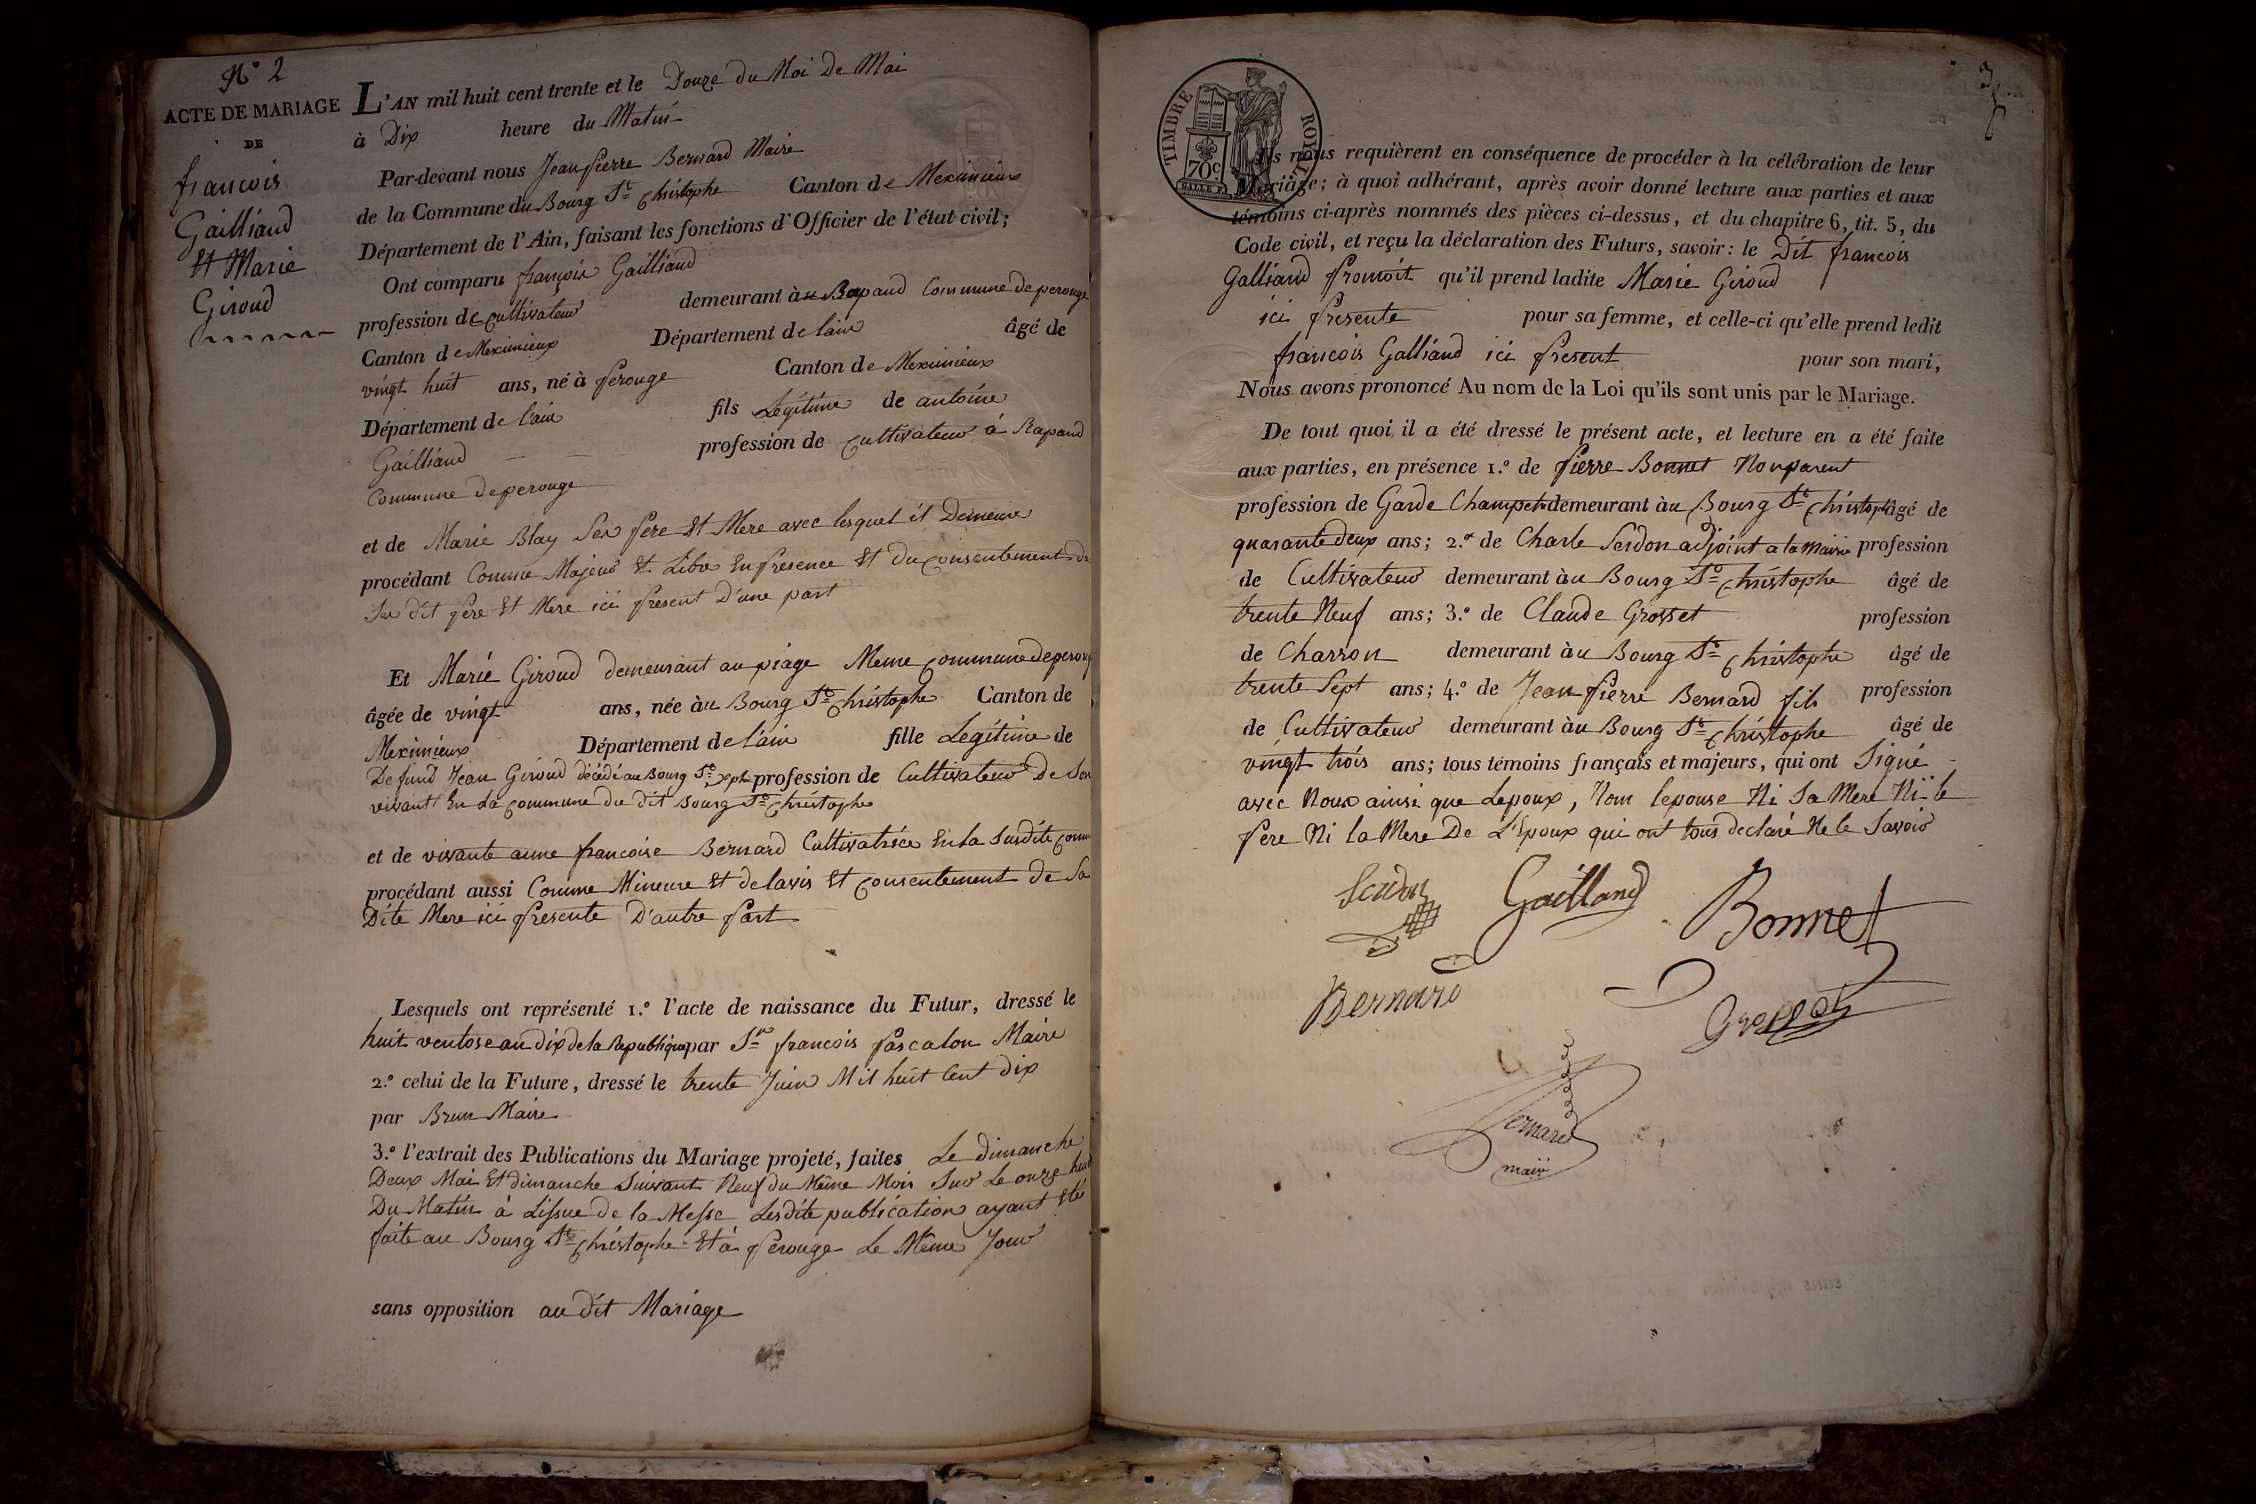 N° 2
ACTE DE MARIAGE
DE
francois
Gailliand
Et Marie
Giroud
L'AN mil huit cent trente et le Douze du Moi De Mai
à Dix heure du Matin
Par-devant nous Jean pierre Bernard Maire
de la Commune du Bourg St christophe Canton de Meximieux
Département de l'Ain, faisant les fonctions d'Officier de l'état civil;
Ont comparu françois Gailliand
profession de cultivateur demeurant à Rapand Commune de perouge
Canton de Meximieux Département de lain âgé de
vingt huit ans, né à perouge Canton de Meximieux
Département de l'ain fils Légitime de antoine
Gailliand profession de cultivateur à Rapand
Commune de perouge
et de Marie Blay Ses pere Et Mere avec lesquel il Demeure
procédant Comme Majeur Et Libre En presence Et du consentement de
Ses dit pere Et Mere ici present D'une part
Et Marie Giroud demeurant au piage Meme commune de perouge
âgée de vingt ans, née àu Bourg St christophe Canton de
Meximieux Département de l'ain fille Legitime de
Defund Jean Giroud décédé au Bourg St xphe profession de Cultivateur De Son
vivant En La commune du dit Bourg St christophe
et de vivante anne francoise Bernard Cultivatrice En la Susdite comm
procédant aussi Comme Mineure Et de lavis Et consentement de Sa
Dite Mere ici presente D'autre part
Lesquels ont représenté 1.º l'acte de naissance du Futur, dressé le
huit ventose an dix de la Republique par Sr francois pascalon Maire
2.º celui de la Future, dressé le trente Juin Mil huit Cent dix
par Brun Maire
3.º l'extrait des Publications du Mariage projeté, faites Le dimanche
Deux Mai Et dimanche Suivant Neuf du Même Mois Sur Le onze heur
Du Matin à Lissue de la Messe Lesdite publication ayant Eté
faite au Bourg St christophe Et à perouge Le Même Jour
sans opposition au dit Mariage
TIMBRE ROYAL
70c.
Ils nous requièrent en conséquence de procéder à la célébration de leur
Mariage; à quoi adhérant, après avoir donné lecture aux parties et aux
témoins ci-après nommés des pièces ci-dessus, et du chapitre 6, tit. 5, du
Code civil, et reçu la déclaration des Futurs, savoir: le Dit francois
Galliand promoit qu'il prend ladite Marie Giroud
ici presente pour sa femme, et celle-ci qu'elle prend ledit
francois Galliand ici present pour son mari,
Nous avons prononcé Au nom de la Loi qu'ils sont unis par le Mariage.
De tout quoi il a été dressé le présent acte, et lecture en a été faite
aux parties, en présence 1.º de pierre Bonnet Non parent
profession de Garde Champetre demeurant àu Bourg St christophe âgé de
quarante deux ans; 2.º de Charle Serdon adjoint a la Mairie profession
de Cultivateur demeurant àu Bourg St christophe âgé de
trente Neuf ans; 3.º de Claude Grosset profession
de Charron demeurant àu Bourg St christophe âgé de
trente Sept ans; 4.º de Jean pierre Bernard fils profession
de Cultivateur demeurant àu Bourg St christophe âgé de
vingt trois ans; tous témoins français et majeurs, qui ont Signé
avec Nous ainsi que Lepoux, Non lepouse Ni Sa Mere Ni le
pere Ni la Mere De L'Epoux qui ont tous declaré Ne le Savoir
Serdon Gailland Bonnet
Bernard Grosset
Bernard
maire